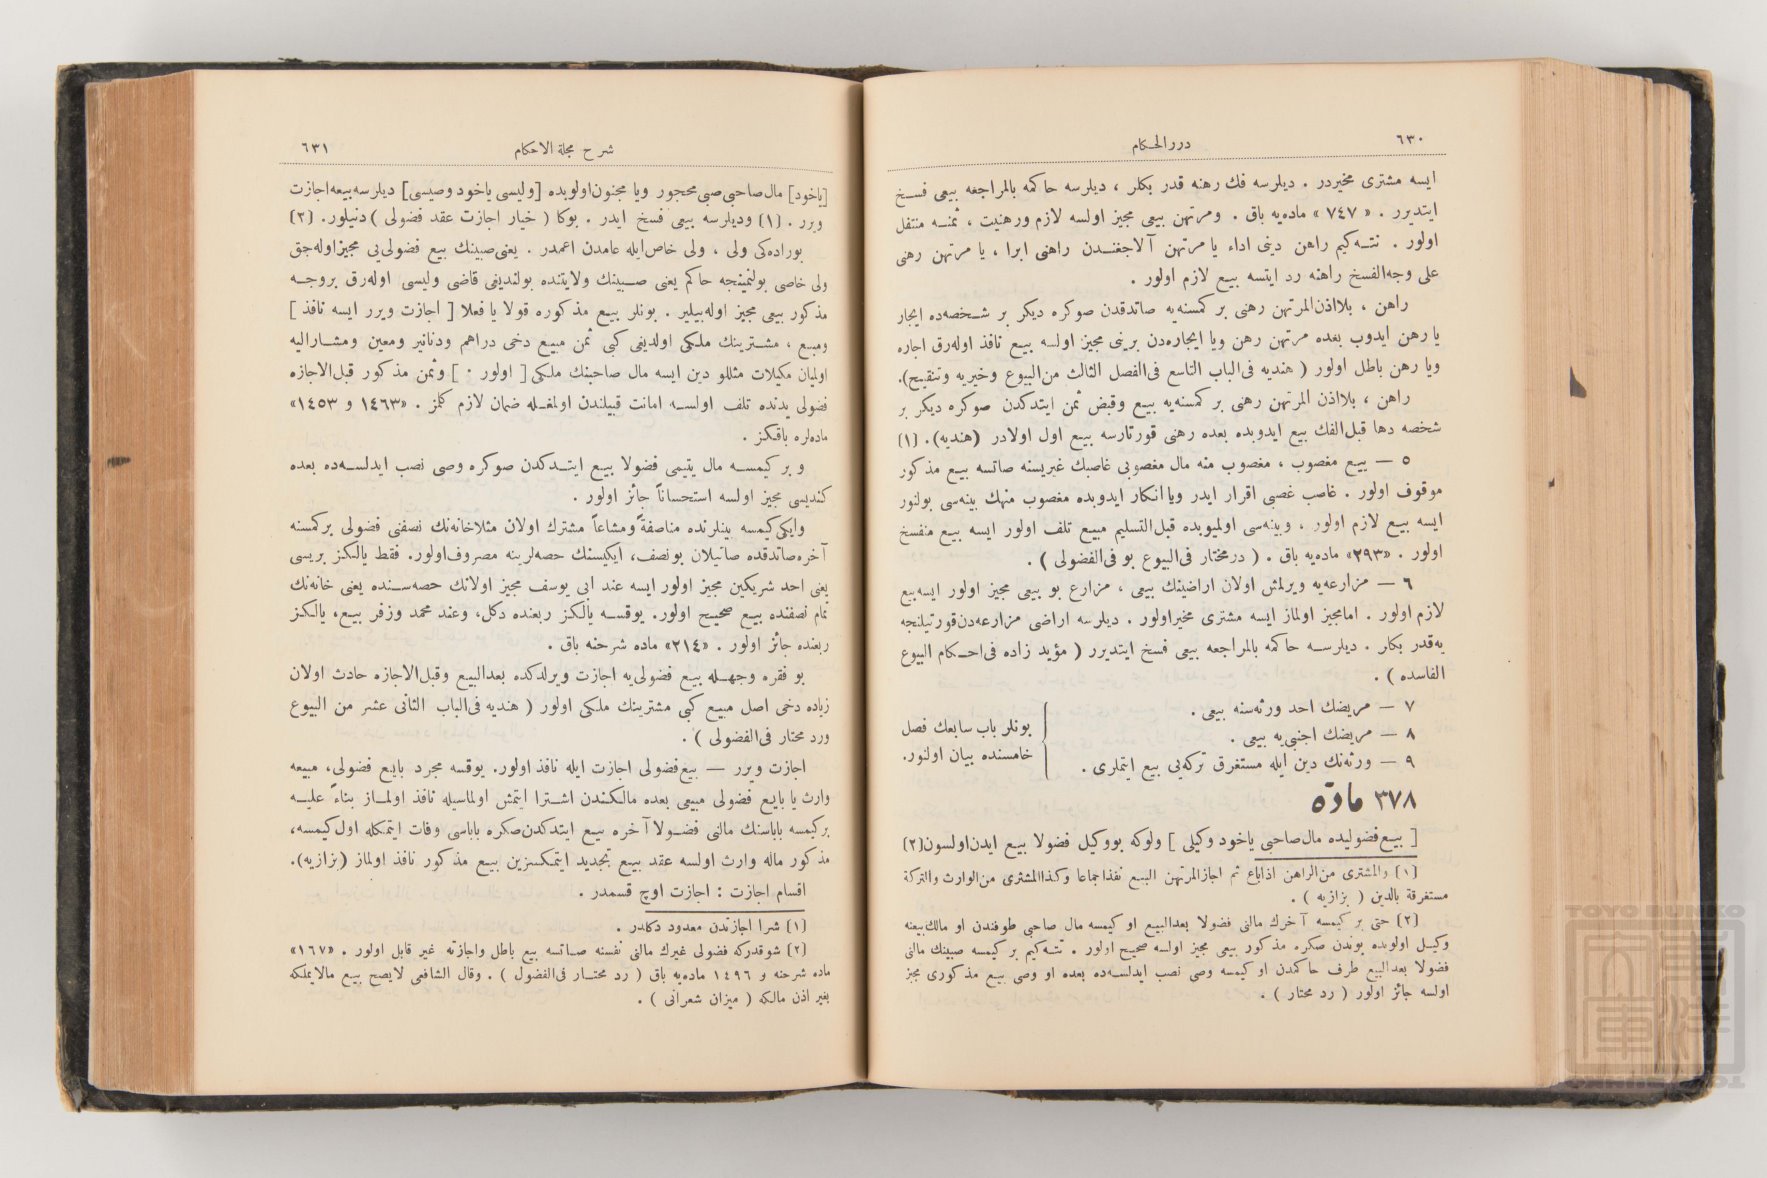 ٦٣٠
دررالحكام
ايسه مشترى مخيردر . ديلرسه فك رهنه قدر بكلر ، ديلرسه حاكمه بالمراجعه بيعى فسخ
ايتديرر . « ٧٤٧ » ماده‌يه باق . ومرتهن بيعى مجيز اولسه لازم ورهنيت ، ثمنه منتقل
اولور . نته‌كيم راهن دينى اداء يا مرتهن آلاجغندن راهنى ابرا ، يا مرتهن رهنى
على وجه‌الفسخ راهنه رد ايتسه بيع لازم اولور .
راهن ، بلااذن‌المرتهن رهنى بر كمسنه‌يه صاتدقدن صوكره ديكر بر شخصه‌ده ايجار
يا رهن ايدوب بعده مرتهن رهن ويا ايجاره‌دن برينى مجيز اولسه بيع نافذ اوله‌رق اجاره
ويا رهن باطل اولور ( هنديه فى‌الباب التاسع فى‌الفصل الثالث من‌البيوع وخيريه وتنقيح).
راهن ، بلااذن المرتهن رهنى بر كمسنه‌يه بيع وقبض ثمن ايتدكدن صوكره ديكر بر
شخصه دها قبل‌الفك بيع ايدوبده بعده رهنى قورتارسه بيع اول اولادر (هنديه). [١]
٥ — بيع مغصوب ، مغصوب منه مال مغصوبى غاصبك غيريسنه صاتسه بيع مذكور
موقوف اولور . غاصب غصبى اقرار ايدر ويا انكار ايدوبده مغصوب منهك بينه‌سى بولنور
ايسه بيع لازم اولور ، وبينه‌سى اولميوبده قبل‌التسليم مبيع تلف اولور ايسه بيع منفسخ
اولور . «٢٩٣» ماده‌يه باق . ( درمختار فى‌البيوع بو فى‌الفضولى ) .
٦ — مزارعه‌يه ويرلمش اولان اراضينك بيعى ، مزارع بو بيعى مجيز اولور ايسه‌بيع
لازم اولور . امامجيز اولماز ايسه مشترى مخيراولور . ديلرسه اراضى مزارعه‌دن‌قورتيلنجه
يه‌قدر بكلر . ديلرسه حاكمه بالمراجعه بيعى فسخ ايتديرر ( مؤيد زاده فى‌احكام البيوع
الفاسده ) .
٧ — مريضك احد ورثه‌سنه بيعى .
٨ — مريضك اجنبى‌يه بيعى .
٩ — ورثه‌نك دين ايله مستغرق تركه‌يى بيع ايتملرى .
بونلر باب سابعك فصل
خامسنده بيان اولنور.
٣٧٨ مادّه
[ بيع‌فضوليده مال‌صاحبى ياخود وكيلى ] ولوكه بووكيل فضولا بيع ايدن‌اولسون[٢]
[١] والمشترى من‌الراهن اذاباع ثم اجازالمرتهن البيع نفذاجماعا وكذاالمشترى من‌الوارث والتركة
مستغرقة بالدين ( بزازيه ) .
[٢] حتى بر كيمسه آخرك مالنى فضولا بعدالبيع او كيمسه مال صاحبى طرفندن او مالك‌بيعنه
وكيل اولوبده بوندن صكره مذكور بيعى مجيز اولسه صحيح اولور . نته‌كيم بر كيمسه صبينك مالنى
فضولا بعدالبيع طرف حاكمدن او كيمسه وصى نصب ايدلسه‌ده بعده او وصى بيع مذكورى مجيز
اولسه جائز اولور ( رد محتار ) .
شرح مجلة الاحكام
٦٣١
[ياخود] مال‌صاحبى‌صبى‌محجور ويا مجنون‌اولوبده [وليسى ياخود وصيسى] ديلرسه‌بيعه‌اجازت
ويرر . [١] وديلرسه بيعى فسخ ايدر . بوكا ( خيار اجازت عقد فضولى ) دنيلور. [٢]
بوراده‌كى ولى ، ولى خاص‌ايله عامدن اعمدر . يعنى‌صبينك بيع فضولى‌يى مجيزاوله‌جق
ولى خاصى بولنمينجه حاكم يعنى صبينك ولايتنده بولنديغى قاضى وليسى اوله‌رق بروجه
مذكور بيعى مجيز اوله‌بيلير . بونلر بيع مذكوره قولا يا فعلا [ اجازت ويرر ايسه نافذ ]
ومبيع ، مشترينك ملكى اولديغى كبى ثمن مبيع دخى دراهم ودنانير ومعين ومشاراليه
اوليان مكيلات مثللو دين ايسه مال صاحبنك ملكى [ اولور . ] وثمن مذكور قبل‌الاجازه
فضولى يدنده تلف اولسه امانت قبيلندن اولمغله ضمان لازم كلمز . «١٤٦٣ و ١٤٥٣»
ماده‌لره باقكز .
و بر كيمسه مال يتيمى فضولا بيع ايتدكدن صوكره وصى نصب ايدلسه‌ده بعده
كنديسى مجيز اولسه استحساناً جائز اولور .
وايكى‌كيمسه بينلرنده مناصفةً ومشاعاً مشترك اولان مثلاخانه‌نك نصفنى فضولى بركمسنه
آخره‌صاتدقده صاتيلان بونصف، ايكيسنك حصه‌لرينه مصروف‌اولور. فقط يالكز بريسى
يعنى احد شريكين مجيز اولور ايسه عند ابى يوسف مجيز اولانك حصه‌سنده يعنى خانه‌نك
تمام نصفنده بيع صحيح اولور. يوقسه يالكز ربعنده دكل، وعند محمد وزفر بيع، يالكز
ربعنده جائز اولور . «٢١٤» ماده شرحنه باق .
بو فقره وجهله بيع فضولى‌يه اجازت ويرلدكده بعدالبيع وقبل‌الاجازه حادث اولان
زياده دخى اصل مبيع كبى مشترينك ملكى اولور ( هنديه فى‌الباب الثانى عشر من البيوع
ورد محتار فى‌الفضولى ) .
اجازت ويرر — بيع‌فضولى اجازت ايله نافذ اولور. يوقسه مجرد بايع فضولى، مبيعه
وارث يا بايع فضولى مبيعى بعده مالكندن اشترا ايتمش اولماسيله نافذ اولماز بناءً عليه
بركيمسه باباسنك مالنى فضولا آخره بيع ايتدكدن‌صكره باباسى وفات ايتمكله اول‌كيمسه،
مذكور ماله وارث اولسه عقد بيع تجديد ايتمكسزين بيع مذكور نافذ اولماز (بزازيه).
اقسام اجازت : اجازت اوچ قسمدر .
[١] شرا اجازتدن معدود دكلدر .
[٢] شوقدركه فضولى غيرك مالنى نفسنه صاتسه بيع باطل واجازته غير قابل اولور . «١٦٧»
ماده شرحنه و ١٤٩٦ ماده‌يه باق ( رد محتار فى‌الفضول ) . وقال الشافعى لايصح بيع مالايملكه
بغير اذن مالكه ( ميزان شعرانى ) .
TOYO BUNKO